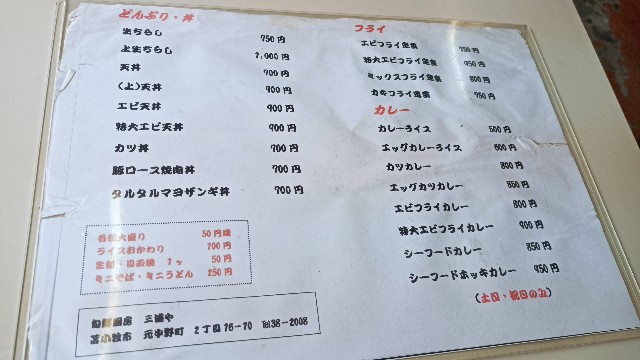 どんぶり・丼
生ちらし 750円
上生ちらし 1,000円
天丼 700円
(上)天丼 900円
エビ天丼 900円
特大エビ天丼 900円
カツ丼 700円
豚ロース焼肉丼 700円
タルタルマヨザンギ丼 700円
各種大盛り 50円増
ライスおかわり 200円
生卵・目玉焼 1ヶ 50円
ミニそば・ミニうどん 250円
旬鮮厨房 三浦や
苫小牧市 元中野町 2丁目16-10 Tel 38-2008
フライ
エビフライ定食 750円
特大エビフライ定食 950円
ミックスフライ定食 800円
カキフライ定食 750円
カレー
カレーライス 500円
エッグカレーライス 600円
カツカレー 800円
エッグカツカレー 850円
エビフライカレー 800円
特大エビフライカレー 900円
シーフードカレー 850円
シーフードホッキカレー 950円
(土日・祝日のみ)